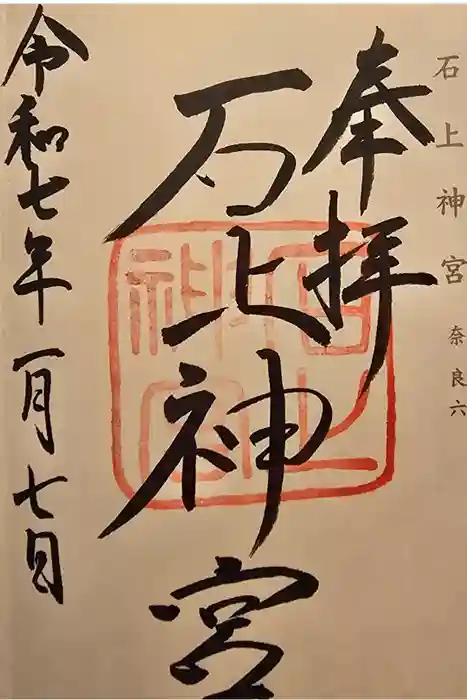 石上神宮 奈良六
奉拝
石上神宮
令和七年一月七日
石上神宮